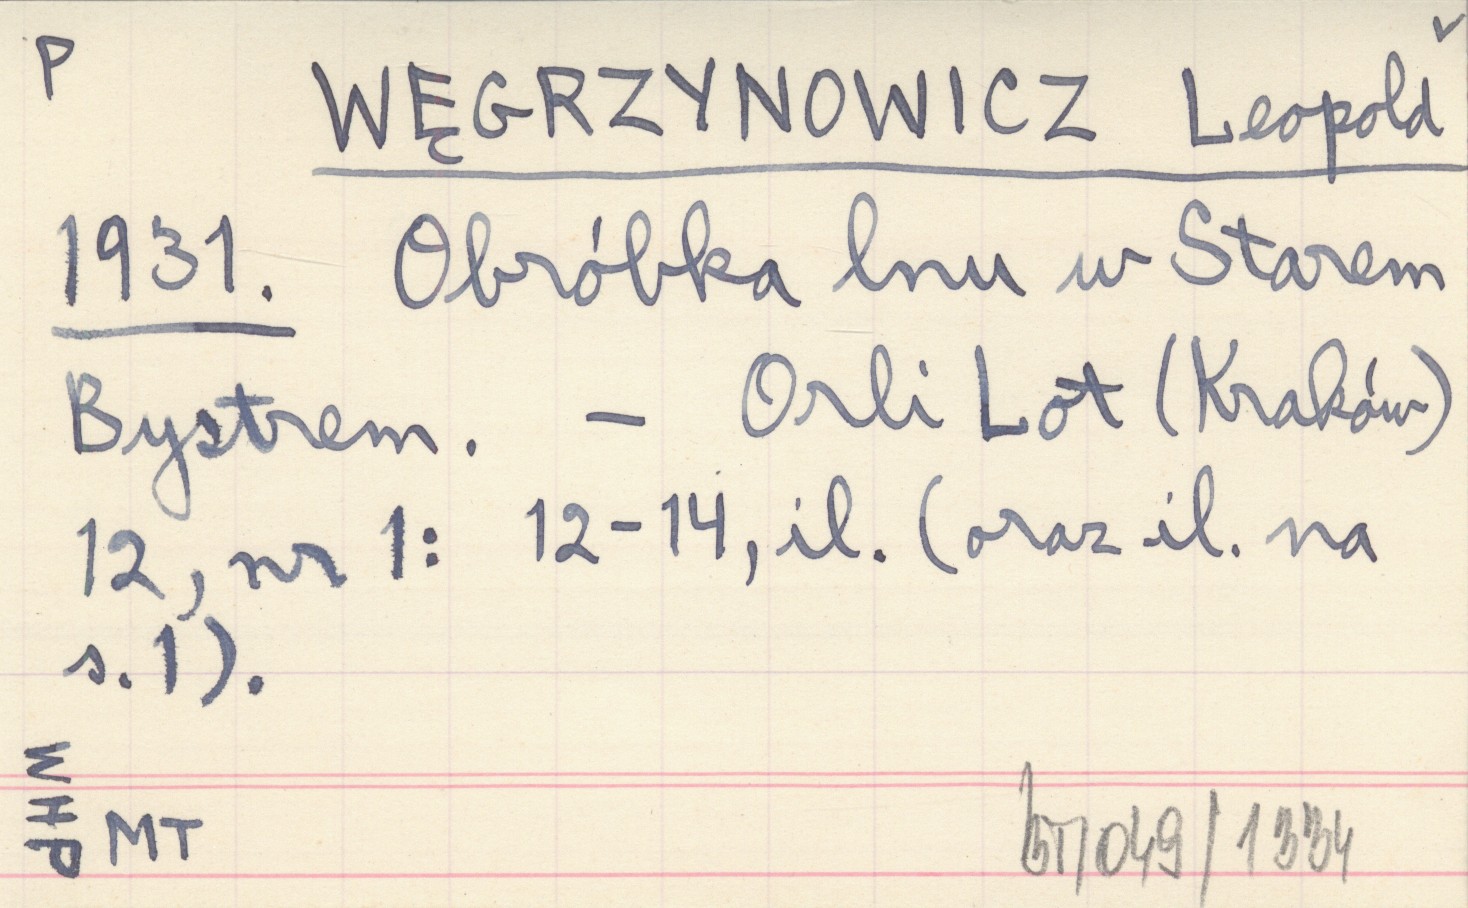 P
WĘGRZYNOWICZ Leopold
1931. Obróbka lnu w Starem
Bystrem. - Orli Lot (Kraków)
12, nr 1: 12-14, il. (oraz il. na
s.1).
WHP
MT
/049/1334